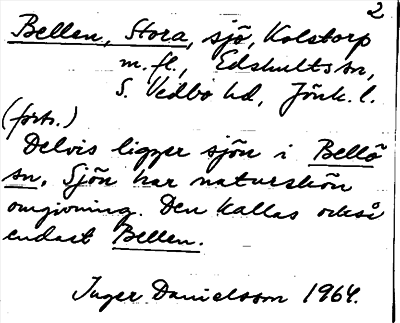 2
Bellen, Stora, sjö, Kolstorp
m.fl., Edshults sn,
S. Vedbo hd, Jönk. l.
(forts.)
Delvis ligger sjön i Bellö
sn. Sjön har naturskön
omgivning. Den kallas också
endast Bellen.
Inger Danielsson 1964.